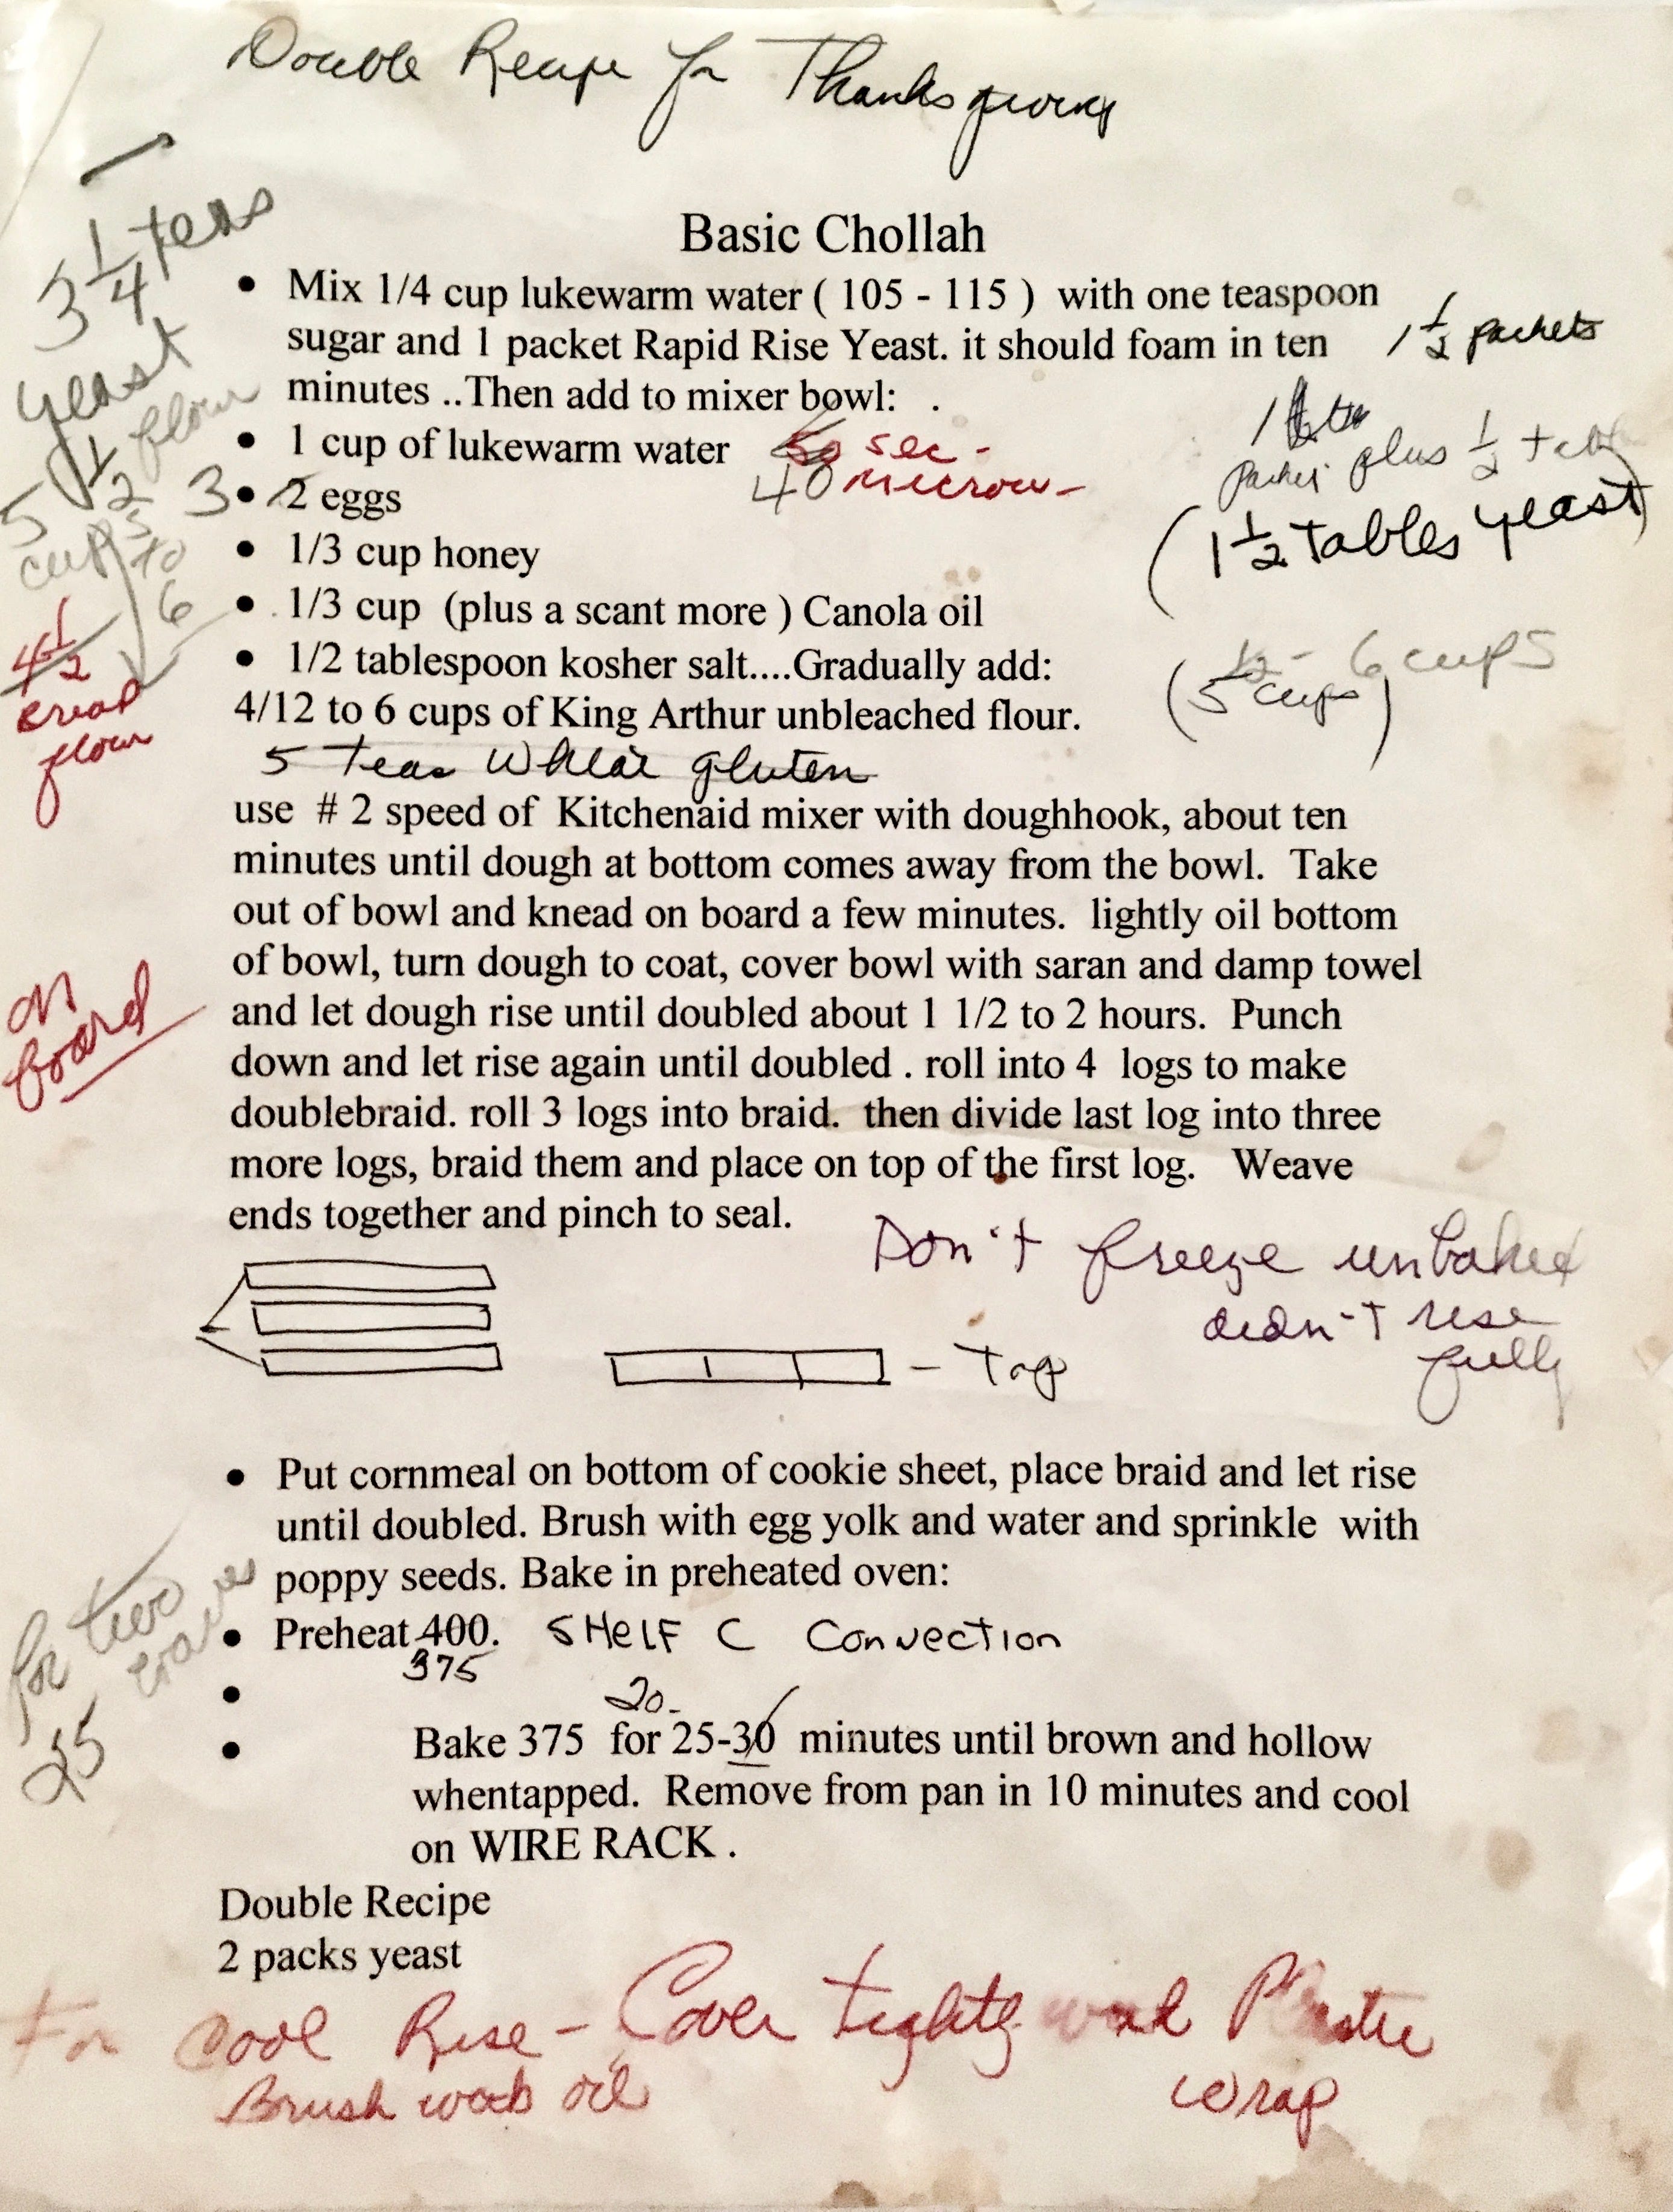 Double Recipe for Thanksgiving
3 1/4 teas
yeast
Basic Chollah
• Mix 1/4 cup lukewarm water ( 105 - 115 ) with one teaspoon
sugar and 1 packet Rapid Rise Yeast. it should foam in ten
1 1/2 packets
minutes ..Then add to mixer bowl: .
1
packet plus 1/2
(1 1/2 tables yeast)
• 1 cup of lukewarm water
sec -
40 microw-
5 1/2 flour
cups
5
to
6
3 • 2 eggs
• 1/3 cup honey
• 1/3 cup (plus a scant more ) Canola oil
• 1/2 tablespoon kosher salt....Gradually add:
4/12 to 6 cups of King Arthur unbleached flour.
(5 1/2 cups) - 6 cups
4 1/2
flour
5 teas Wheat gluten
use # 2 speed of Kitchenaid mixer with doughhook, about ten
minutes until dough at bottom comes away from the bowl. Take
out of bowl and knead on board a few minutes. lightly oil bottom
of bowl, turn dough to coat, cover bowl with saran and damp towel
and let dough rise until doubled about 1 1/2 to 2 hours. Punch
down and let rise again until doubled . roll into 4 logs to make
doublebraid. roll 3 logs into braid. then divide last log into three
more logs, braid them and place on top of the first log. Weave
ends together and pinch to seal.
on
board
Don't freeze unbaked
didn't rise
fully
- Top
• Put cornmeal on bottom of cookie sheet, place braid and let rise
until doubled. Brush with egg yolk and water and sprinkle with
poppy seeds. Bake in preheated oven:
• Preheat 400. SHELF C Convection
375
for two
loaves
25
•
20-
• Bake 375 for 25-30 minutes until brown and hollow
whentapped. Remove from pan in 10 minutes and cool
on WIRE RACK .
Double Recipe
2 packs yeast
For Cool Rise - Cover tightly with Plastic
wrap
Brush with oil